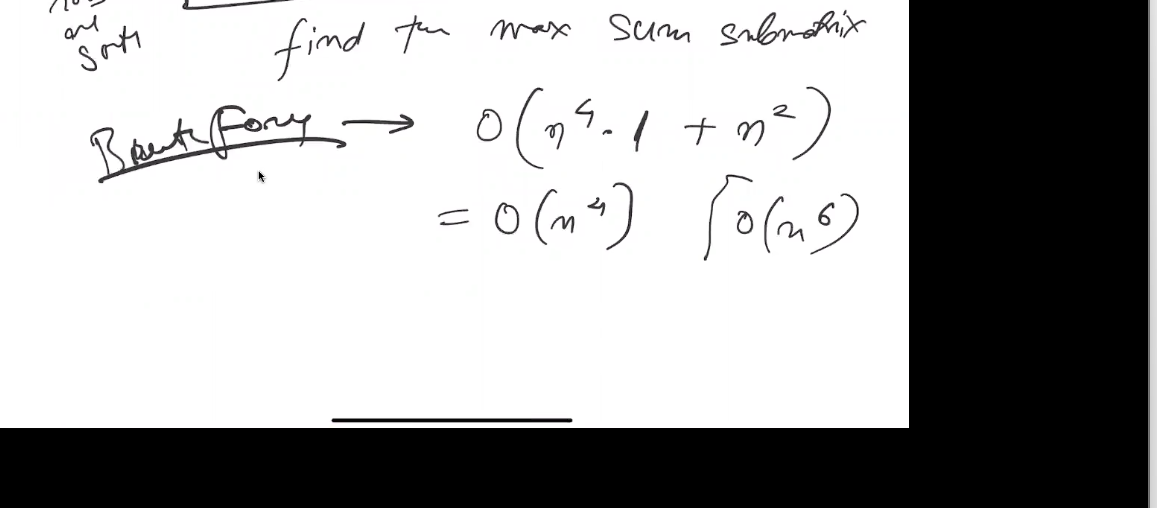 and
Sorts find the max sum submatrix
Brute Force → O(n⁴·1 + n²)
= O(n⁴) O(n⁶)